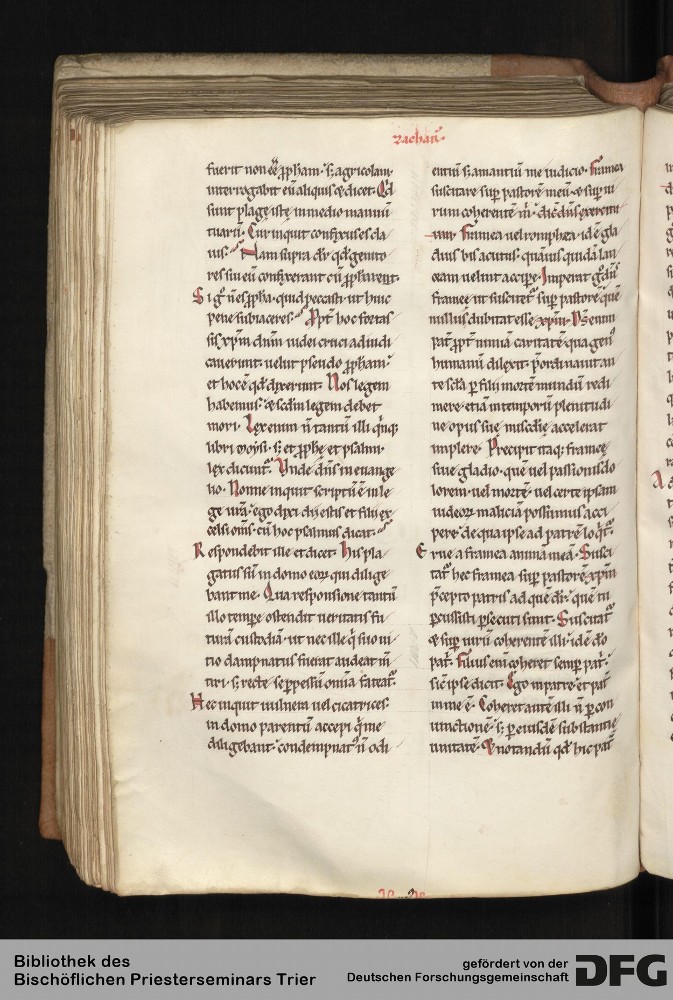 zachari᷒
fuerit non eē ꝓpham· sꝫ agricolam·
interrogabit eū aliquis & dicet· Qd̄
sunt plagę istę in medio manuū
tuarū· Cur inquit confixus es cla
uis· Nam supra dr̄ qd̄ genito
res sui eū confixerant cū ꝓpharent·
Si gͦ n̄ es ꝓpha· quid peccasti· ut huic
pene subiaceres· Ppt̄ hoc foetas
sis xp̄m dn̄m iudei cruci adiudi
cauerunt· uelut pseudo ꝓpham·
et hoc ē qd̄ dixerunt· Nos legem
habemus· & scdm̄ legem debet
mori· Lex enim n̄ tantū illi qnq;
libri moysi· sꝫ et ꝓphę et psalmi·
lex dicunt᷒· Vnde dn̄s in euange
lio· Nonne inquit scriptū ē in le
ge ur̄a· ego dixi dii estis et filii ex
celsi om̄s· cū hoc psalmus dicat·
Respondebit ille et dicet· His pla
gatus sū in domo eoꝝ qui dilige
bant me· Qua responsione tantū
illo tempe ostendit ueritatis fu
turā custodiā· ut nec ille qͥ suo ui
tio dampnatus fuerat audeat m̄
tiri· sꝫ recte se ppessū omnia fateat᷒·
Hec inquit uulnera uel cicatrices·
in domo parentū accepi qͥ me
diligebant· condempnat᷒ n̄ odi
entiū sꝫ amantiū me iudicio· Framea
suscitare sup pastorē meū· & sup ui
rum coherentē m̄· dic̄ dn̄s exercitu
um· Framea uel romphea· id ē gla
dius bis acutus· quāuis quidā lan
ceam uelint accipe· Imperat gͦ ds̄
frameę ut suscitet᷒ sup pastorē quē
nullus dubitat esse xp̄m· Ds̄ enim
pat̄ ꝓpt̄ nimiā caritatē qua gen᷒
humanū dilexit· pordinauit an
te scła p filii mortē mundū redi
mere· etiā in temporū plenitudi
ne opus suę misc̄die accelerat
implere· Precipit itaq; frameę
siue gladio· quē uel passionis do
lorem· uel mortē· uel certe ipsam
iudeoꝝ maliciā possimus acci
pere· de qua ipse ad patrē loqt᷒·
Erue a framea animā meā· Susci
tat᷒ hec framea sup pastorē xp̄m
pcepto patris ad quē dr̄· quē tu
pcussisti psecuti sunt· Suscitat᷒
& sup uirū coherentē illi· id ē dō
pat̄· Filius eni coheret semp pat̄·
sic̄ ipse dicit· Ego in patre et pat̄
in me ē· Coheret autē illi n̄ p con
iunctionē· sꝫ p eiusdē substantię
unitatē· & notandū qd̄ hic pat̄
Bibliothek des
Bischöflichen Priesterseminars Trier
gefördert von der
Deutschen Forschungsgemeinschaft
DFG